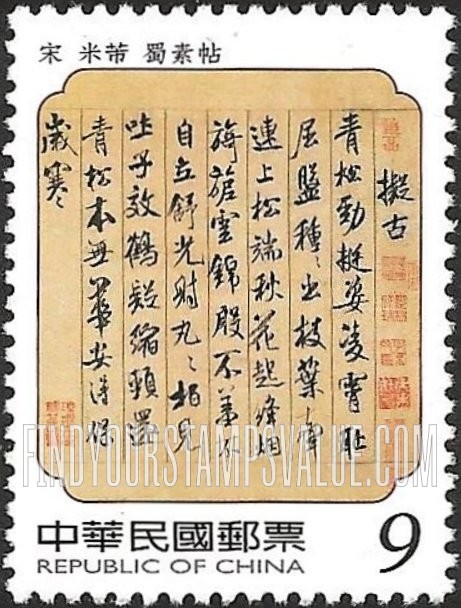 宋 米芾 蜀素帖
擬古
青松勁挺姿凌霄恥
屈盤種〻出枝葉牽
連上松端秋花起絳烟
旖旎雲錦殷不羞不
自立舒光射丸〻柏見
吐子效鶴疑縮頸還
青松本無華安得保
歲寒
FINDYOURSTAMPSVALUE.COM
中華民國郵票
REPUBLIC OF CHINA
9